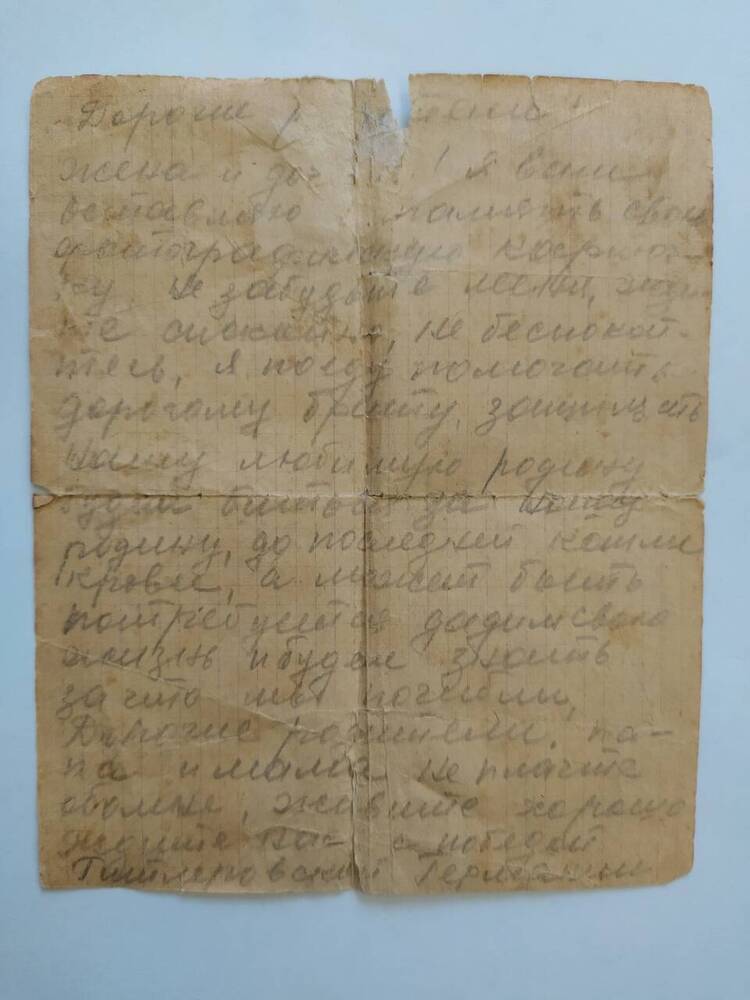 Дорогие р тели!
жена и доч ! Я вам
оставляю память свою
фотографическую карточ-
ку, не забудьте меня, жди
те спокойно, не беспокой-
тесь, я поеду помогать
дорогому брату, защищать
нашу любимую родину
будем биться за нашу
родину, до последней капли
крови, а может быть
потребуется дадим свою
жизнь и будем знать
за что мы погибли,
Дорогие родители, па-
па и мама не плачьте
обомне, живите хорошо
ждите нас с победой
Гитлеровской Германии